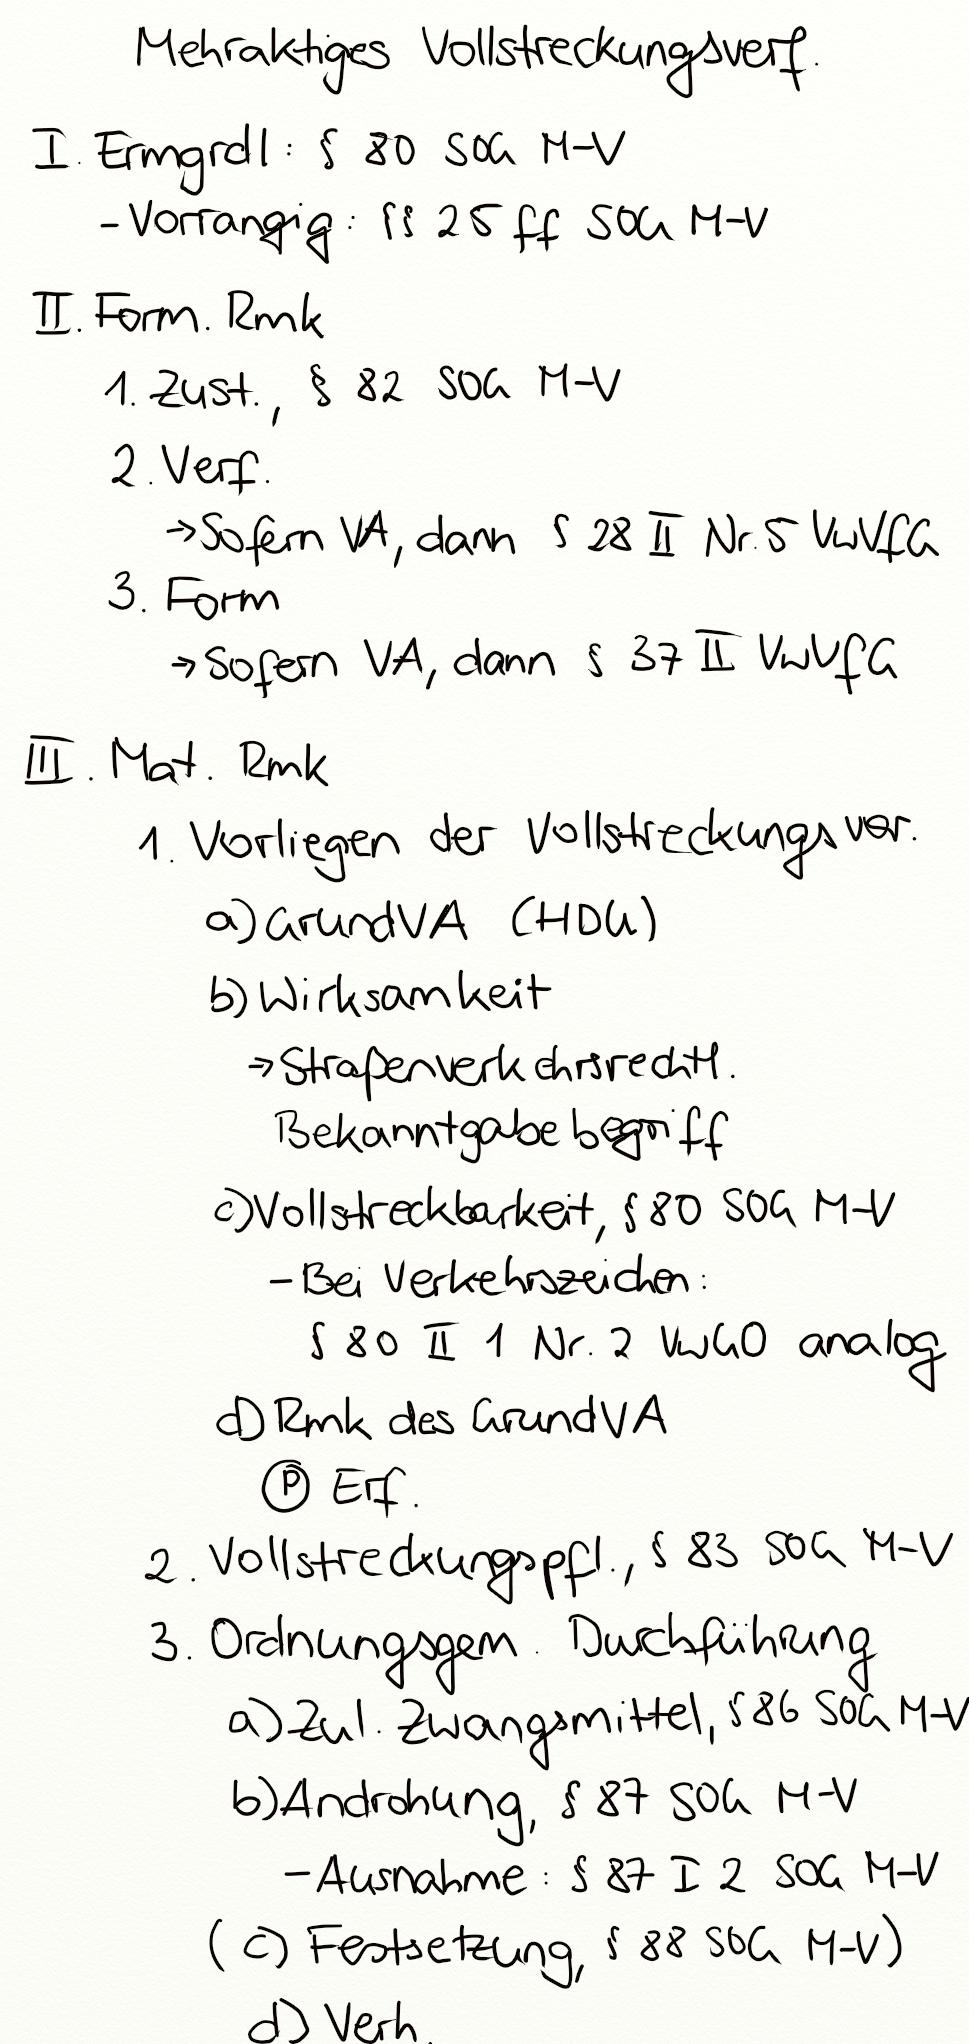 Mehraktiges Vollstreckungsverf.
I. Ermgrdl: § 80 SOG M-V
- Vorrangig: §§ 25 ff SOG M-V
II. Form. Rmk
1. Zust., § 82 SOG M-V
2. Verf.
→ Sofern VA, dann § 28 II Nr. 5 VwVfG
3. Form
→ Sofern VA, dann § 37 II VwVfG
III. Mat. Rmk
1. Vorliegen der Vollstreckungsvor.
a) GrundVA (HDU)
b) Wirksamkeit
→ Straßenverkehrsrechtl.
Bekanntgabebegriff
c) Vollstreckbarkeit, § 80 SOG M-V
- Bei Verkehrszeichen:
§ 80 II 1 Nr. 2 VwGO analog
d) Rmk des GrundVA
Ⓟ Erf.
2. Vollstreckungspfl., § 83 SOG M-V
3. Ordnungsgem. Durchführung
a) Zul. Zwangsmittel, § 86 SOG M-V
b) Androhung, § 87 SOG M-V
- Ausnahme: § 87 I 2 SOG M-V
(c) Festsetzung, § 88 SOG M-V)
d) Verh.